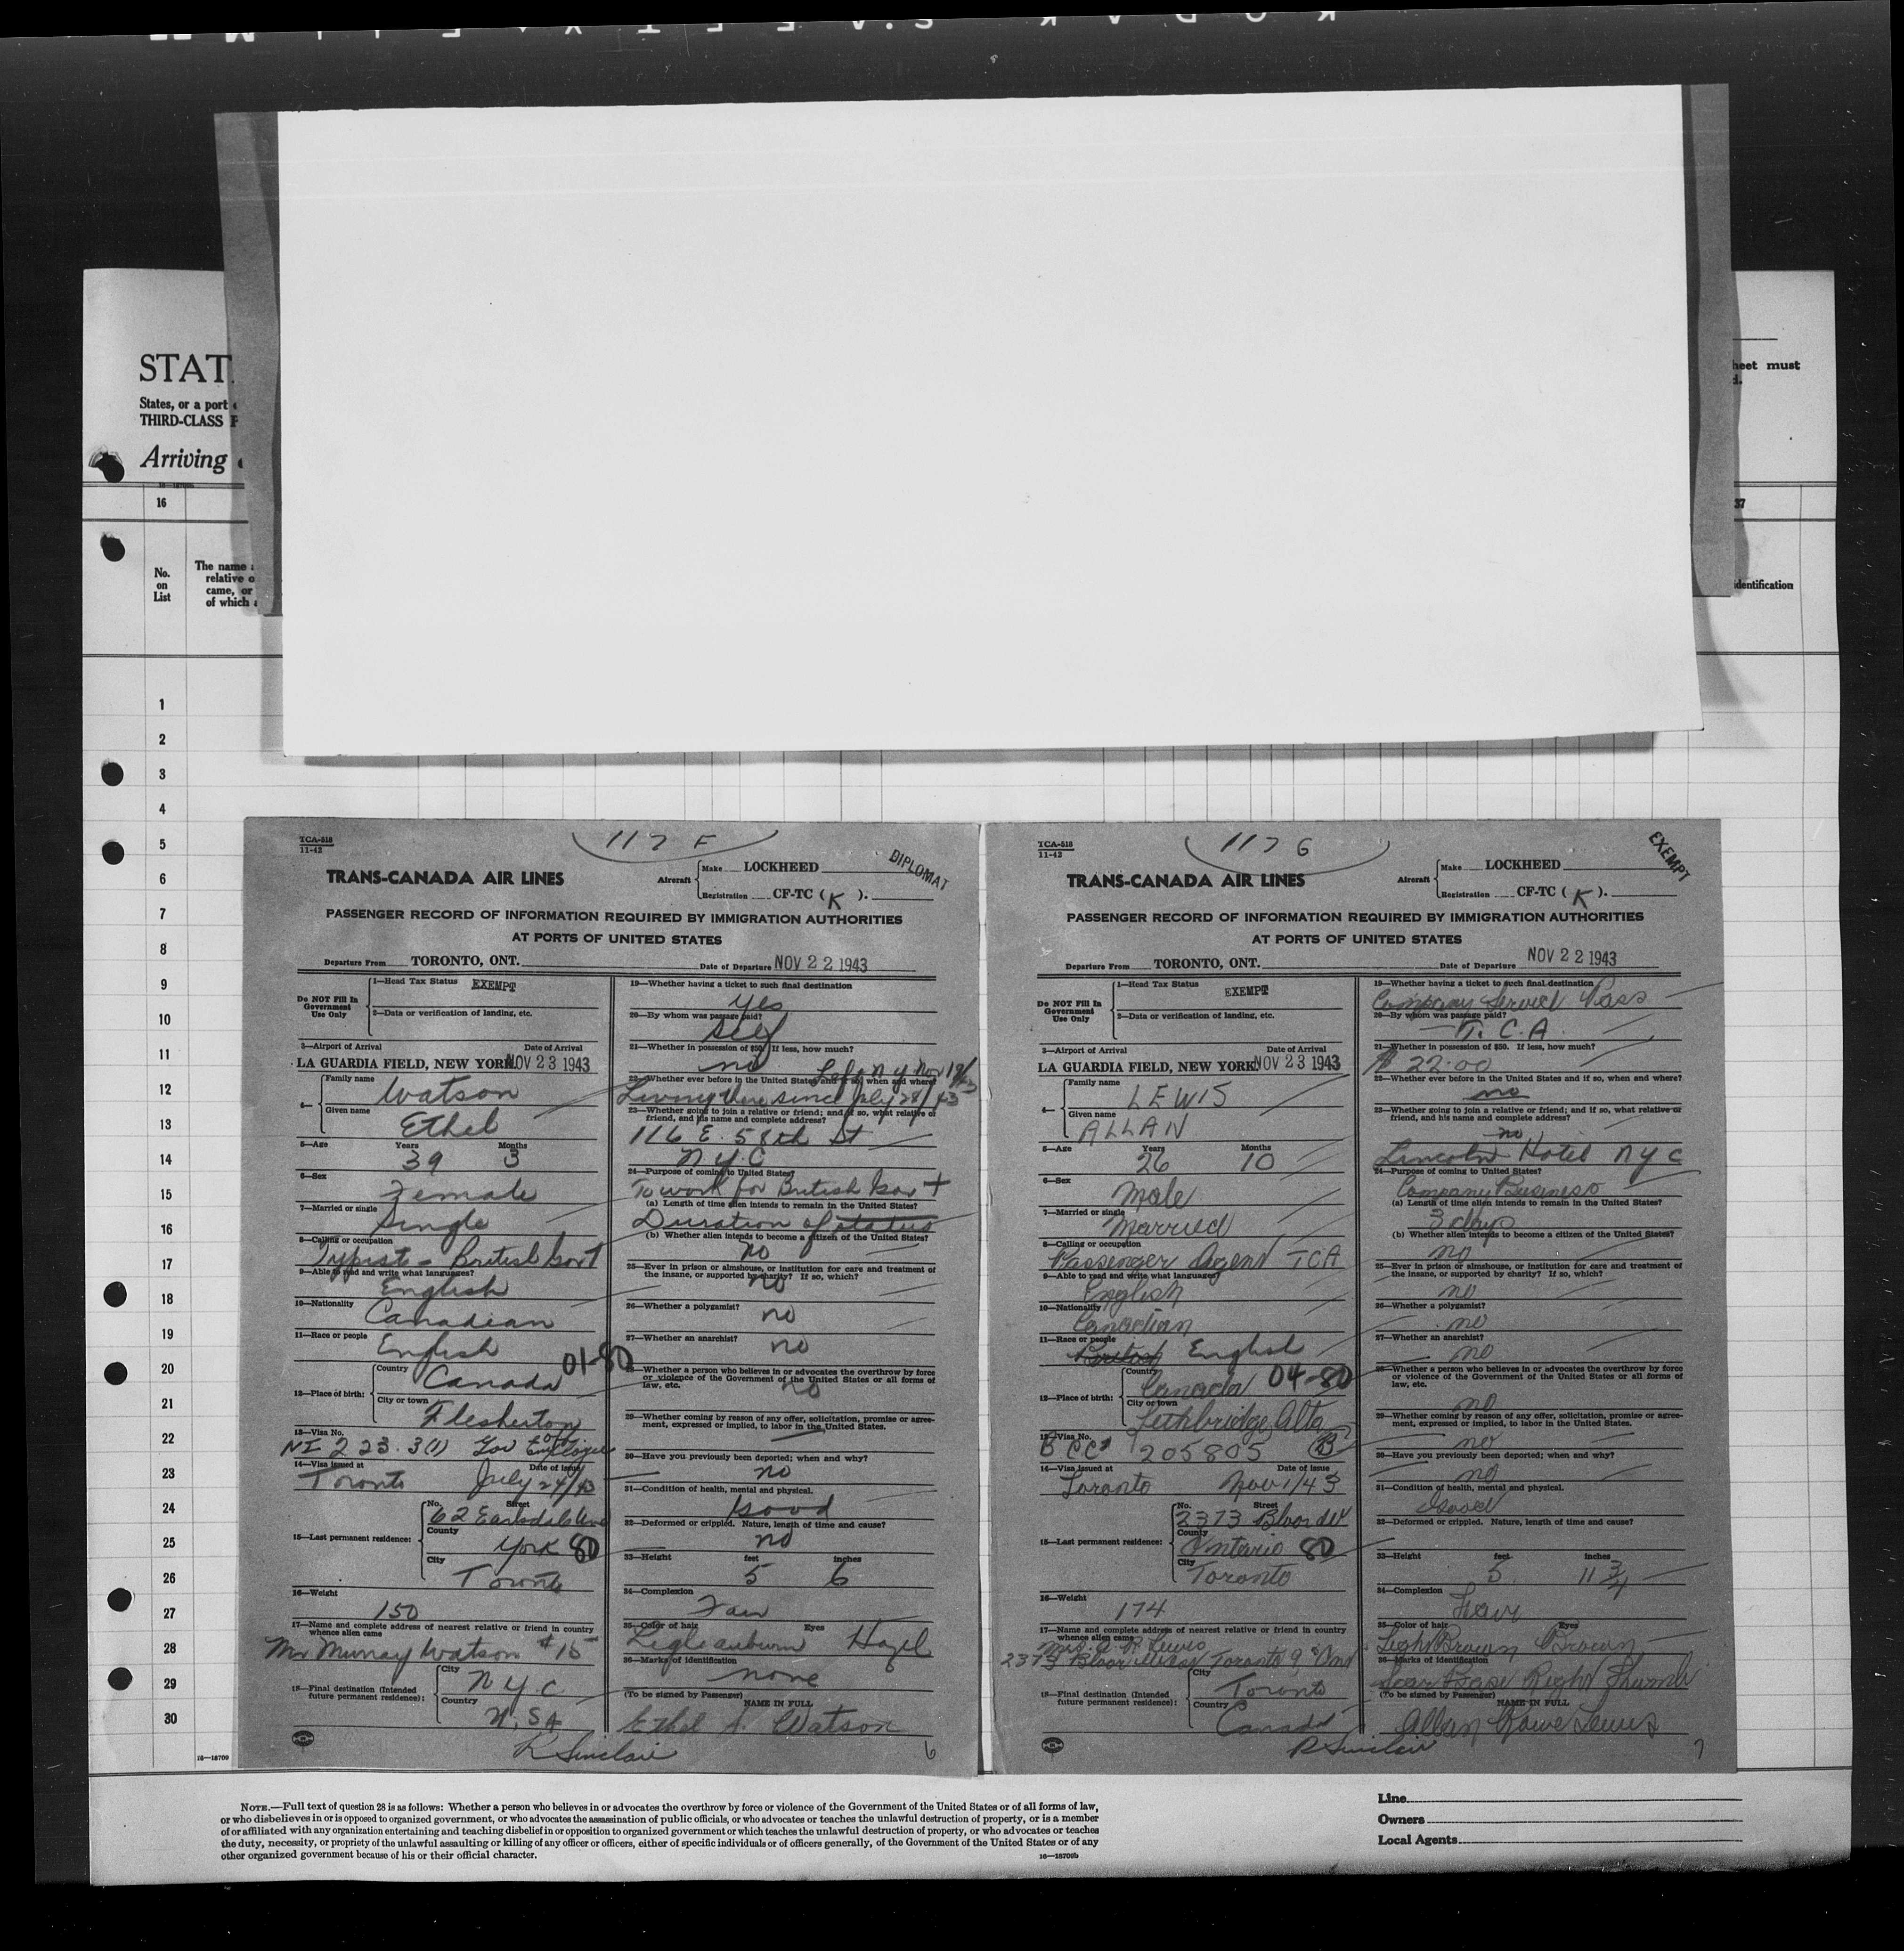 KODAK SAFETY FILM
STAT
States, or a port
THIRD-CLASS P
Arriving
heet must
d.
16
37
No.
on
List
The name
relative o
came, or
of which
identification
1
2
3
4
5
6
7
8
9
10
11
12
13
14
15
16
17
18
19
20
21
22
23
24
25
26
27
28
29
30
16—18709
TCA-518
11-42
117 F
DIPLOMAT
TRANS-CANADA AIR LINES
Aircraft Make LOCKHEED
Registration CF-TC ( K ).
PASSENGER RECORD OF INFORMATION REQUIRED BY IMMIGRATION AUTHORITIES
AT PORTS OF UNITED STATES
Departure From TORONTO, ONT. Date of Departure NOV 22 1943
Do NOT Fill In Government Use Only
1—Head Tax Status EXEMPT
2—Data or verification of landing, etc.
3—Airport of Arrival Date of Arrival
LA GUARDIA FIELD, NEW YORK NOV 23 1943
4— Family name Watson
Given name Ethel
5—Age Years 39 Months 3
6—Sex Female
7—Married or single Single
8—Calling or occupation
Typist - British Govt
9—Able to read and write what languages?
English
10—Nationality
Canadian
11—Race or people
English
01-80
12—Place of birth: Country Canada
City or town Flesherton
13—Visa No.
NI 223.3(1) Gov Employee
14—Visa issued at Date of issue
Toronto July 24/43
15—Last permanent residence: No. Street 62 Earlsdale Ave
County York 80
City Toronto
16—Weight
150
17—Name and complete address of nearest relative or friend in country
whence alien came
Mr Murray Watson #15
18—Final destination (Intended
future permanent residence): City N.Y.C
Country U.S.A
19—Whether having a ticket to such final destination
yes
20—By whom was passage paid?
self
21—Whether in possession of $50. If less, how much?
no
Left N Y Nov 19/43
22—Whether ever before in the United States and if so, when and where?
Living there since July 28/43
23—Whether going to join a relative or friend; and if so, what relative or
friend, and his name and complete address?
116 E. 58th St
N.Y.C
24—Purpose of coming to United States?
To work for British Govt
(a) Length of time alien intends to remain in the United States?
Duration of status
(b) Whether alien intends to become a citizen of the United States?
no
25—Ever in prison or almshouse, or institution for care and treatment of
the insane, or supported by charity? If so, which?
no
26—Whether a polygamist?
no
27—Whether an anarchist?
no
28—Whether a person who believes in or advocates the overthrow by force
or violence of the Government of the United States or all forms of
law, etc.
no
29—Whether coming by reason of any offer, solicitation, promise or agree-
ment, expressed or implied, to labor in the United States.
30—Have you previously been deported; when and why?
no
31—Condition of health, mental and physical.
Good
32—Deformed or crippled. Nature, length of time and cause?
no
33—Height feet inches
5 6
34—Complexion
Fair
35—Color of hair Eyes
auburn Hazel
36—Marks of identification
none
(To be signed by Passenger) NAME IN FULL
Ethel Watson
R Sinclair
6
TCA-518
11-42
117 G
EXEMPT
TRANS-CANADA AIR LINES
Aircraft Make LOCKHEED
Registration CF-TC ( K ).
PASSENGER RECORD OF INFORMATION REQUIRED BY IMMIGRATION AUTHORITIES
AT PORTS OF UNITED STATES
Departure From TORONTO, ONT. Date of Departure NOV 22 1943
Do NOT Fill In Government Use Only
1—Head Tax Status EXEMPT
2—Data or verification of landing, etc.
3—Airport of Arrival Date of Arrival
LA GUARDIA FIELD, NEW YORK NOV 23 1943
4— Family name LEWIS
Given name ALLAN
5—Age Years 26 Months 10
6—Sex Male
7—Married or single Married
8—Calling or occupation
Passenger Agent TCA
9—Able to read and write what languages?
English
10—Nationality
Canadian
11—Race or people
British English
12—Place of birth: Country Canada 04-80
City or town Lethbridge, Alta
13—Visa No.
BCC 205805 B
14—Visa issued at Date of issue
Toronto Nov 1/43
15—Last permanent residence: No. Street 2373 Bloor W
County Ontario 80
City Toronto
16—Weight
174
17—Name and complete address of nearest relative or friend in country
whence alien came
Mrs. A. R. Lewis
2373 Bloor West Toronto 9, Ont
18—Final destination (Intended
future permanent residence): City Toronto
Country Canada
19—Whether having a ticket to such final destination
Company Service Pass
20—By whom was passage paid?
T.C.A.
21—Whether in possession of $50. If less, how much?
$ 22.00
22—Whether ever before in the United States and if so, when and where?
no
23—Whether going to join a relative or friend; and if so, what relative or
friend, and his name and complete address?
no
Lincoln Hotel NYC
24—Purpose of coming to United States?
Company Business
(a) Length of time alien intends to remain in the United States?
3 days
(b) Whether alien intends to become a citizen of the United States?
no
25—Ever in prison or almshouse, or institution for care and treatment of
the insane, or supported by charity? If so, which?
no
26—Whether a polygamist?
no
27—Whether an anarchist?
no
28—Whether a person who believes in or advocates the overthrow by force
or violence of the Government of the United States or all forms of
law, etc.
no
29—Whether coming by reason of any offer, solicitation, promise or agree-
ment, expressed or implied, to labor in the United States.
no
30—Have you previously been deported; when and why?
no
31—Condition of health, mental and physical.
Good
32—Deformed or crippled. Nature, length of time and cause?
33—Height feet inches
5 11 3/4
34—Complexion
Fair
35—Color of hair Eyes
Light Brown Brown
36—Marks of identification
Scar Base Right Thumb
(To be signed by Passenger) NAME IN FULL
Allan Rowe Lewis
R Sinclair
7
NOTE.—Full text of question 28 is as follows: Whether a person who believes in or advocates the overthrow by force or violence of the Government of the United States or of all forms of law,
or who disbelieves in or is opposed to organized government, or who advocates the assassination of public officials, or who advocates or teaches the unlawful destruction of property, or is a member
of or affiliated with any organization entertaining and teaching disbelief in or opposition to organized government or which teaches the unlawful destruction of property, or who advocates or teaches
the duty, necessity, or propriety of the unlawful assaulting or killing of any officer or officers, either of specific individuals or of officers generally, of the Government of the United States or of any
other organized government because of his or their official character.
16—18709b
Line
Owners
Local Agents